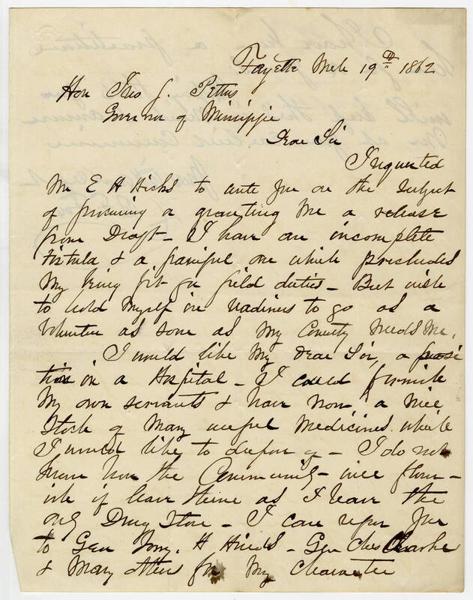 Fayette Mch 19th 1862
Hon Jno J. Pettus
Governor of Mississippi
Dear Sir
I requested
Mr E H Hicks to write you on the subject
of procuring or granting me a release
from Draft - I have an incomplete
fistula & a painful one which precludes
my being fit for field duties - But wish
to hold myself in readiness to go as a
volunteer as soon as my County needs me.
I would like my Dear Sir, a posi
tion in a Hospital - I could furnish
my own servants & have now a nice
stock of many useful medicines which
I would like to dispose of - I do not
know how the Community will
if leave them as I leave the
only Drug Store - I can refer you
to Gen Thos. H Hinds - Gen Chas Clarke
& many others for my character